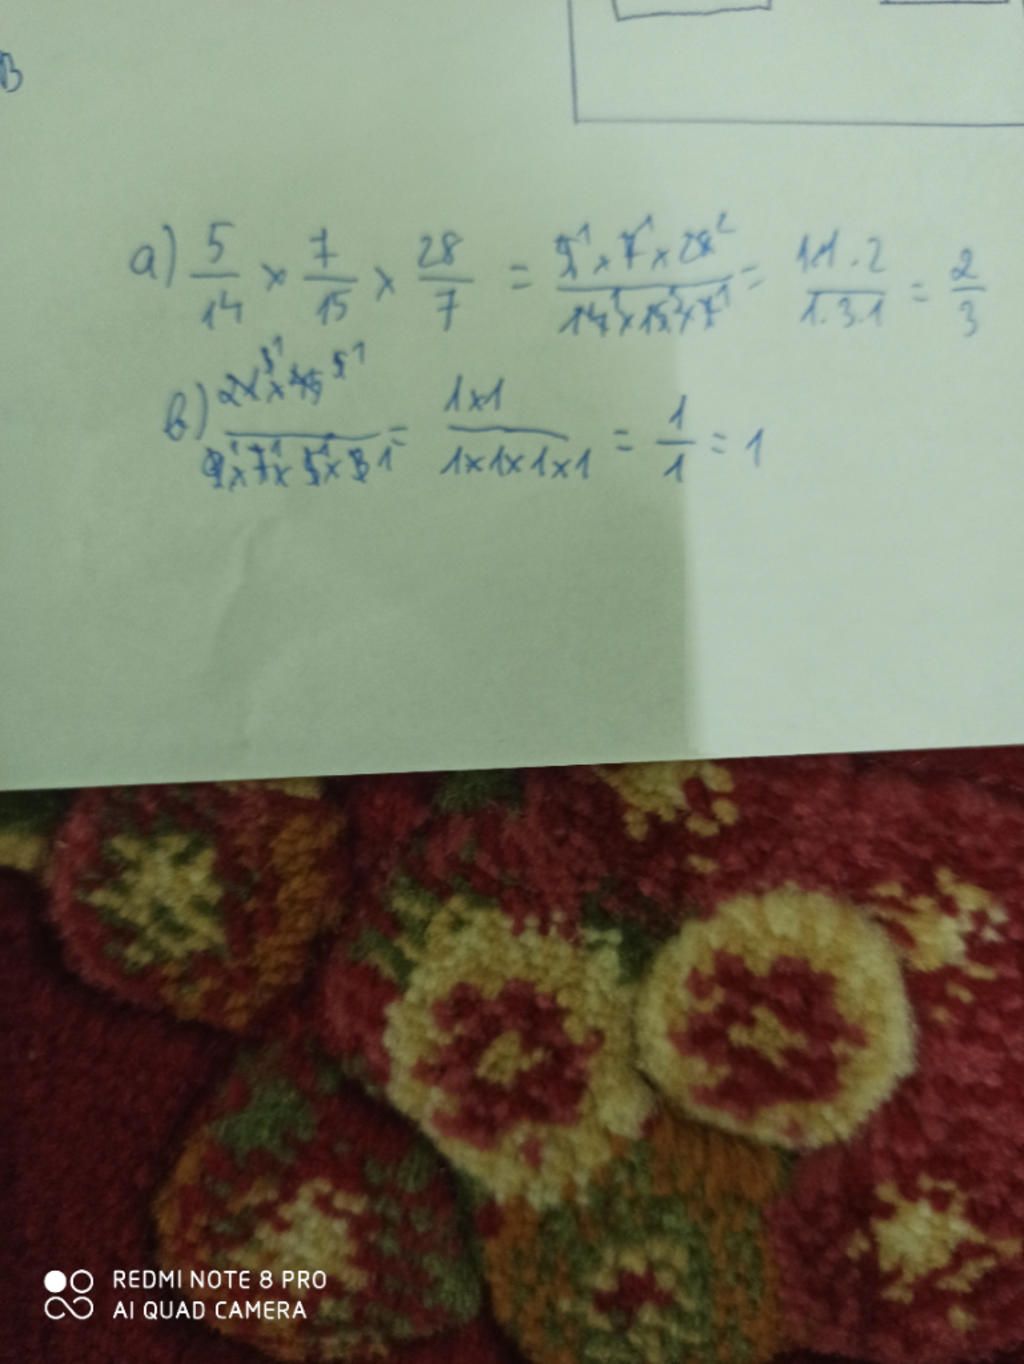 B
a) 5/14 × 7/15 × 28/7 = 5¹ × 7¹ × 28² / 14¹ × 15³ × 7¹ = 1.1.2 / 1.3.1 = 2/3
b) 21 3¹ × 45 5¹ / 9¹ × 7¹ × 5¹ × 3 1 = 1×1 / 1×1×1×1 = 1/1 = 1
REDMI NOTE 8 PRO
AI QUAD CAMERA